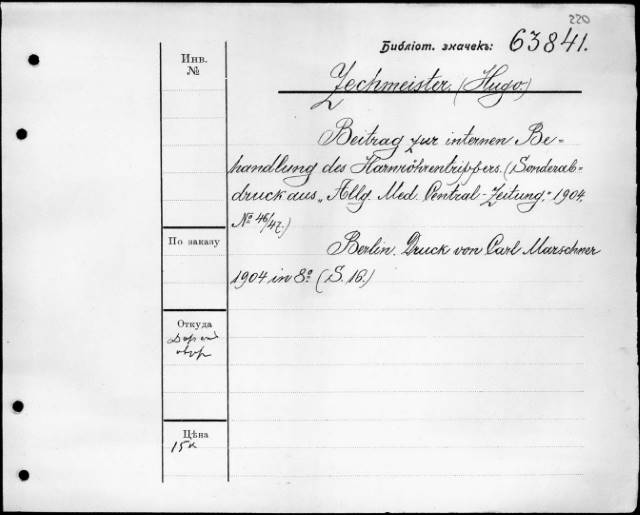 220
Библіот. значекъ: 63841.
Инв.
№
Zechmeister. (Hugo.)
Beitrag zur internen Be-
handlung des Harnröhrentrippers. (Sonderab-
druck aus „Allg. Med. Central-Zeitung." 1904.
№ 46/47.)
По заказу
Berlin. Druck von Carl Marschner
1904 in 8º (S. 16.)
Откуда
Цѣна
15к